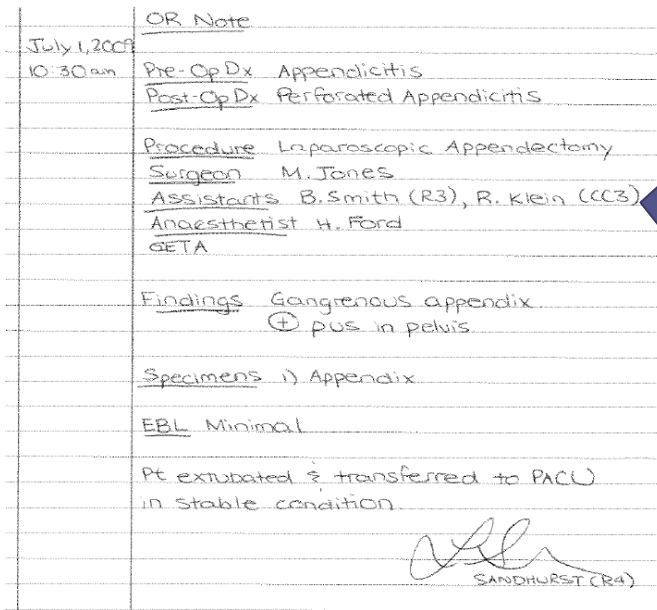 OR Note
July 1, 2009
10:30am Pre-Op Dx Appendicitis
Post-Op Dx Perforated Appendicitis
Procedure Laparoscopic Appendectomy
Surgeon M. Jones
Assistants B. Smith (R3), R. Klein (CC3)
Anaesthetist H. Ford
GETA
Findings Gangrenous appendix
⊕ pus in pelvis
Specimens 1) Appendix
EBL Minimal
Pt extubated & transferred to PACU
in stable condition
SANDHURST (R4)